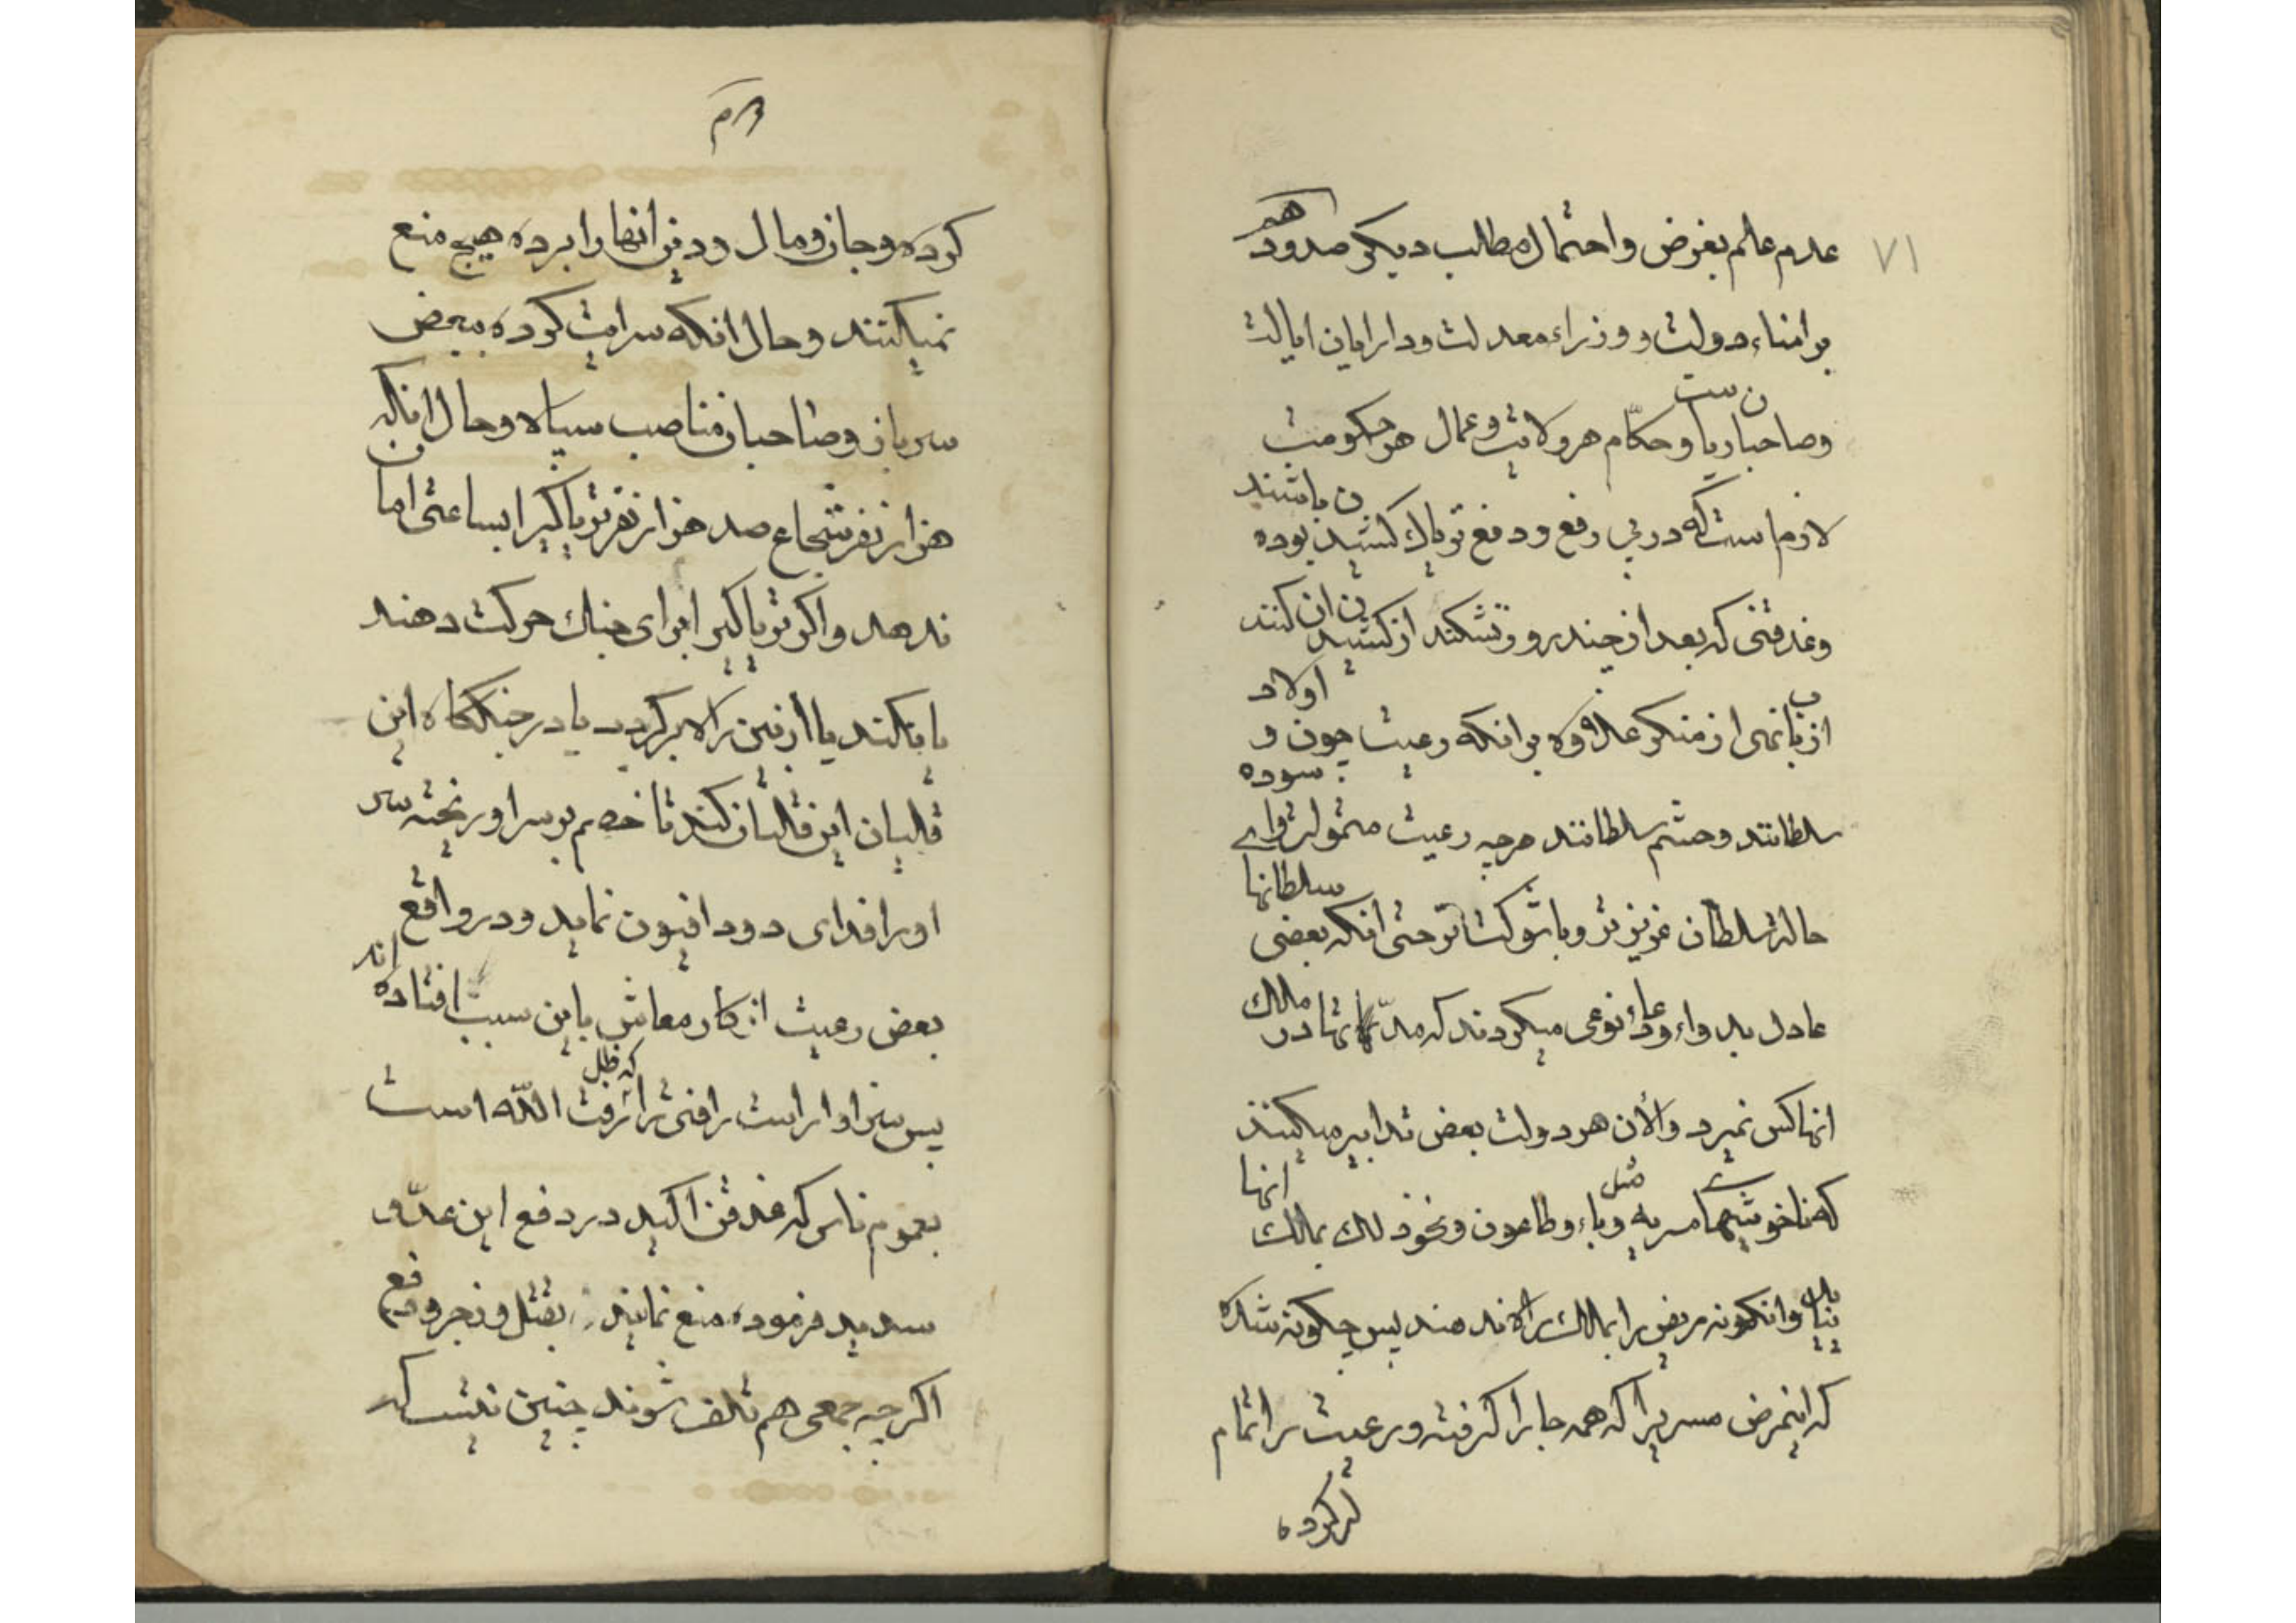 ٧١
عدم علم بغرض و احتمال مطالب دیکر صدود هم
بر امناء دولت و وزراء معدلت و دارایان ایالت
وصاحبان ریاست و حکّام هر ولایت و عمال هر حکومت
لازم است که در پی رفع و دفع تریاك کشیدن بوده باشند
وغدقنی که بعد از چند روز نشکند از کشیدن ان کنند
از باب نهی از منکر علاوه بر انکه رعیت چون اولاد و
سلطانند و حشم سلطانند هرچه رعیت متمولتر و اسوده
حالتر سلطان عزیزتر و با شوکت تر حتی انکه بعضی سلطانها
عادل بد واء ودعاء نوعی میکردند که مدّتها در ممالك
انها کس نمیرد و الأن هر دولت بعض تدابیر میکنند
که ناخوشیهای مسریه مثل وباء و طاعون و نحو ذلك بمالك انها
نیاید وانکونه مریض را بمالك راه ندهند پس چکونه شده
که اینمرض مسری را که همه جا را کرفته و رعیت را تمام
کرده
کرده و جان و مال و دین انها را برده هیچ منع
نمیکنند و حال انکه سرایت کرده ببعض
سرباز و صاحبان مناصب سپاه و حال انکه
هزار نفر شجاع صد هزار نفر تریاکیرا ساعتی امان
ندهد و اکر تریاکیرا برای جنك حرکت دهند
یا در جنککاه این
قلیان این قلیان کند تا خصم بر سر او ریخته سر
او را فدای دود افیون نماید و در واقع
بعض رعیت از کار معاش باین سبب افتاده اند
پس سزاوار است رافتی را که ظل اللّه است
بعموم ناس که غدقن اکید در دفع این عدّو
سدید فرموده منع نمایند بقتل و زجر و دفع
اکرچه جمعی هم تلف شوند چنین نیست که